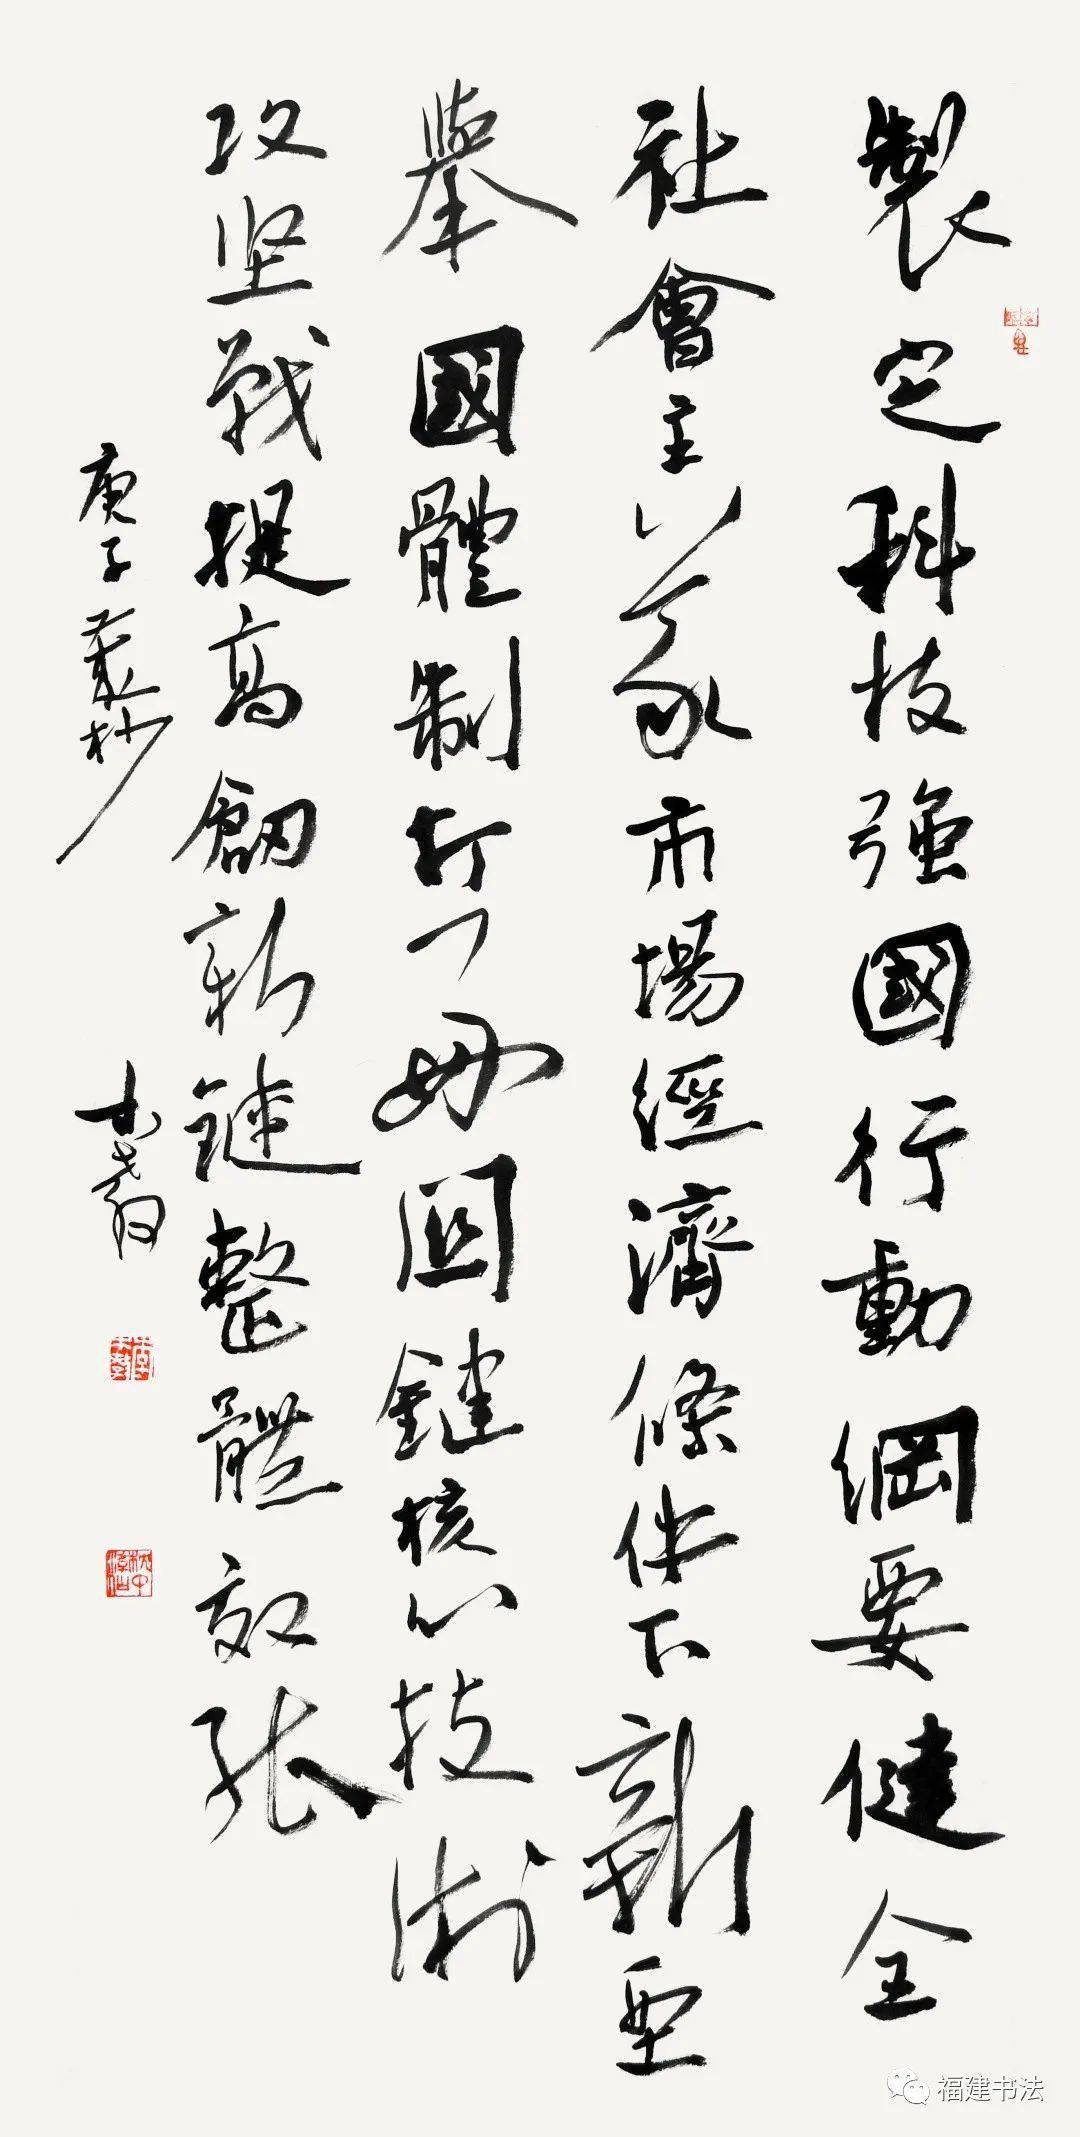 製定科技強國行動綱要健全
社會主義市場經濟條件下新型
舉國體制打好關鍵核心技術
攻坚戰提高創新鏈整體效能
庚子歲杪
福建书法